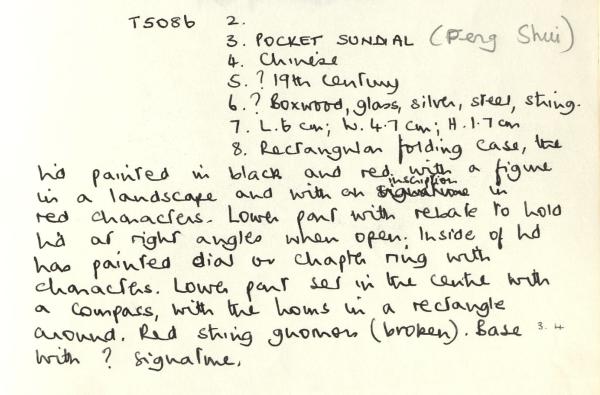 T5086 2.
3. POCKET SUNDIAL (Feng Shui)
4. Chinese
5. ? 19th Century
6. ? Boxwood, glass, silver, steel, string.
7. L. 6 cm; W. 4.7 cm; H. 1.7 cm
8. Rectangular folding case, the
lid painted in black and red with a figure
in a landscape and with an inscription in
red characters. Lower part with rebate to hold
lid at right angles when open. Inside of lid
has painted dial or chapter ring with
characters. Lower part set in the centre with
a compass, with the hours in a rectangle
around. Red string gnomon (broken). Base 3.4
with ? signature.